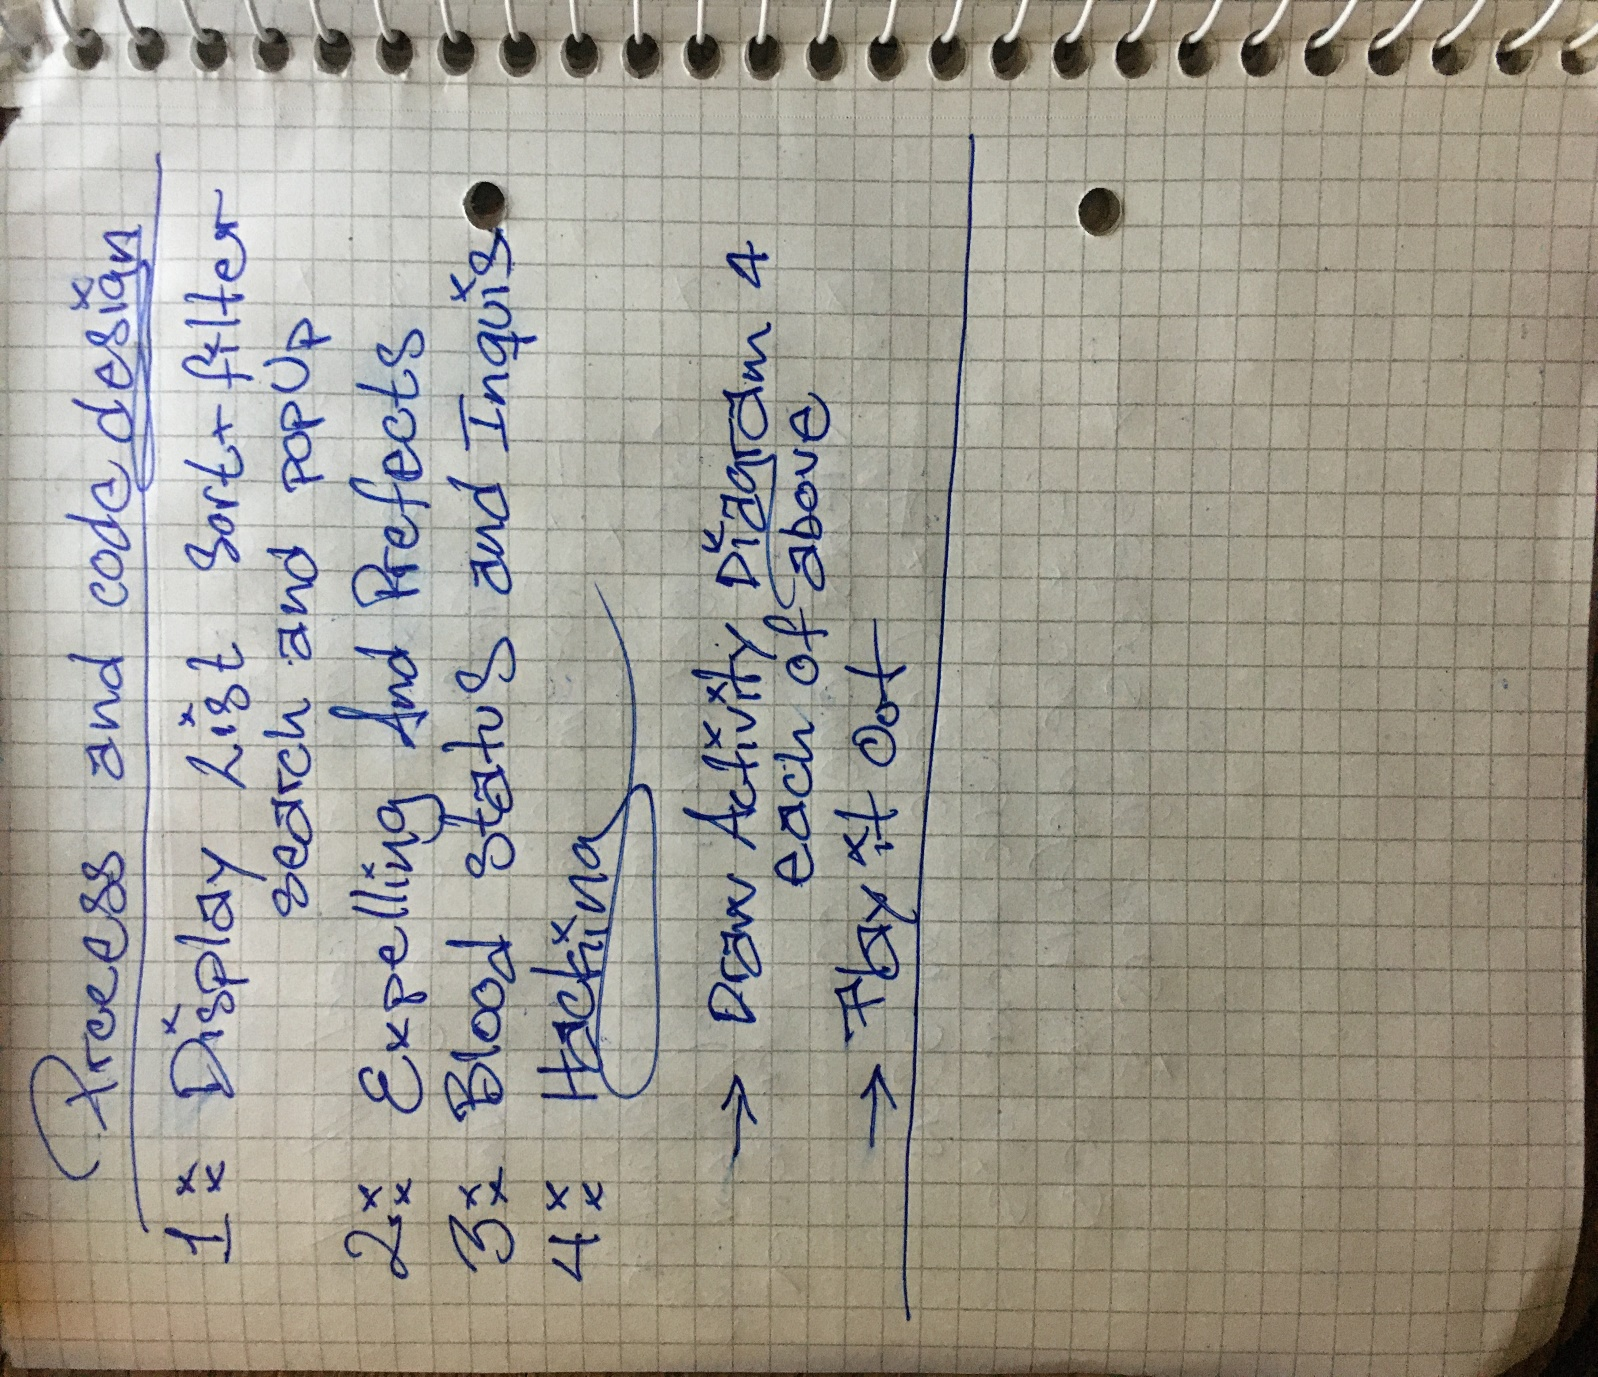 Process and code design
1: Display List Sort + filter
search and popUp
2: Expelling And Prefects
3: Blood status and Inquis
4: Hacking
→ Draw Activity Diagram 4
each of above
→ Play it Out